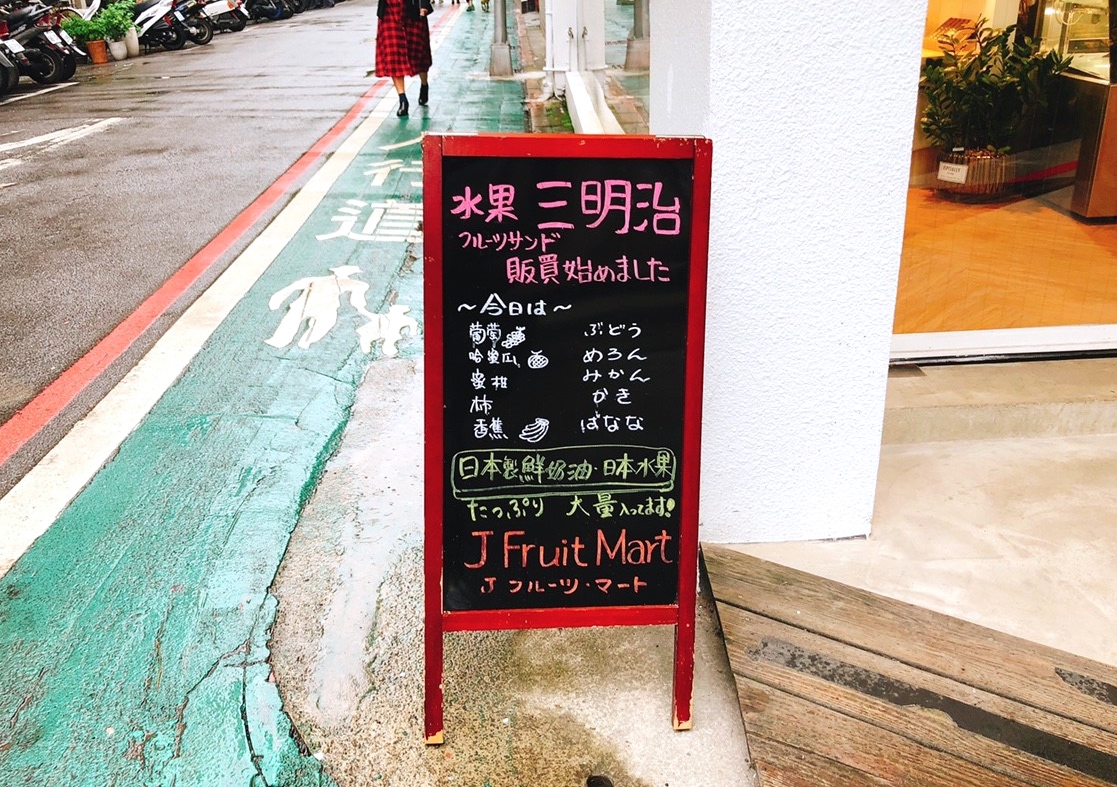 人行道
水果 三明治
フルーツサンド
販買始めました
～今日は～
葡萄 ぶどう
哈蜜瓜 めろん
蜜柑 みかん
柿 かき
香蕉 ばなな
日本製鮮奶油·日本水果
たっぷり 大量入ってます!
J Fruit Mart
J フルーツ・マート